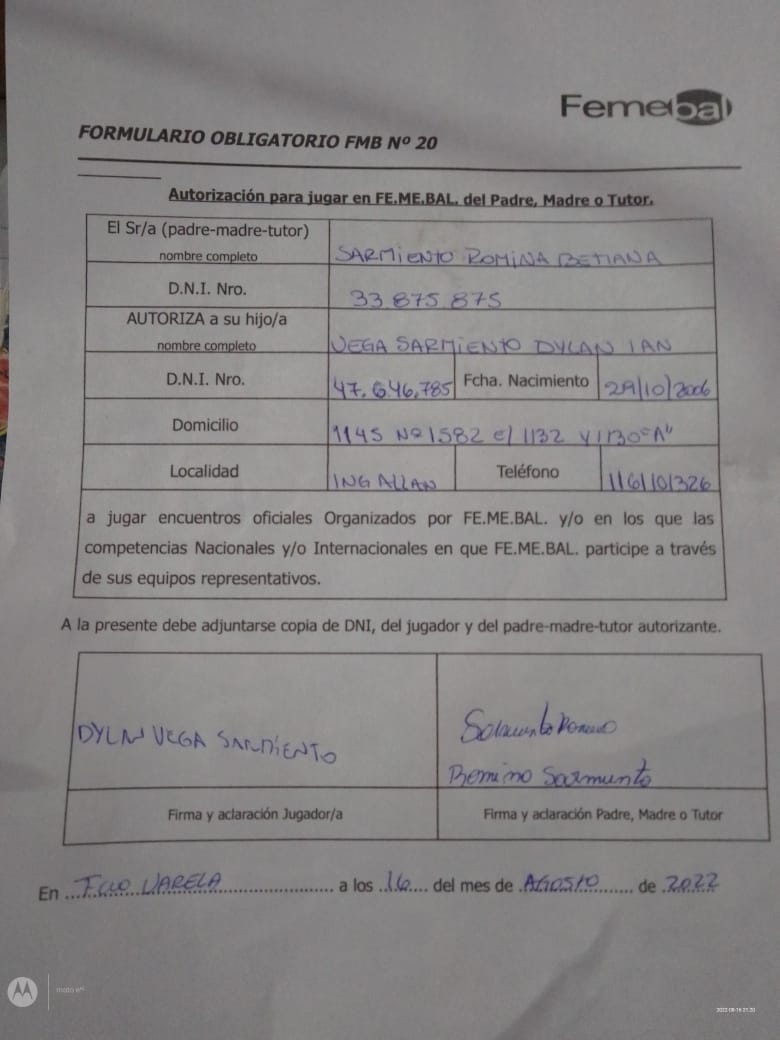 Femebal
FORMULARIO OBLIGATORIO FMB Nº 20
Autorización para jugar en FE.ME.BAL. del Padre, Madre o Tutor.
El Sr/a (padre-madre-tutor)
nombre completo
SARMIENTO ROMINA BETIANA
D.N.I. Nro.
33 875 875
AUTORIZA a su hijo/a
nombre completo
VEGA SARMIENTO DYLAN IAN
D.N.I. Nro.
47.646.785
Fcha. Nacimiento
29/10/2006
Domicilio
1145 Nº 1582 e/ 1132 y 1130 "A"
Localidad
ING ALLAN
Teléfono
1161101326
a jugar encuentros oficiales Organizados por FE.ME.BAL. y/o en los que las
competencias Nacionales y/o Internacionales en que FE.ME.BAL. participe a través
de sus equipos representativos.
A la presente debe adjuntarse copia de DNI, del jugador y del padre-madre-tutor autorizante.
DYLAN VEGA SARMIENTO
Sarmiento Romina
Romina Sarmiento
Firma y aclaración Jugador/a
Firma y aclaración Padre, Madre o Tutor
En ... FCIO VARELA ... a los ..16.... del mes de .AGOSTO....... de .2022